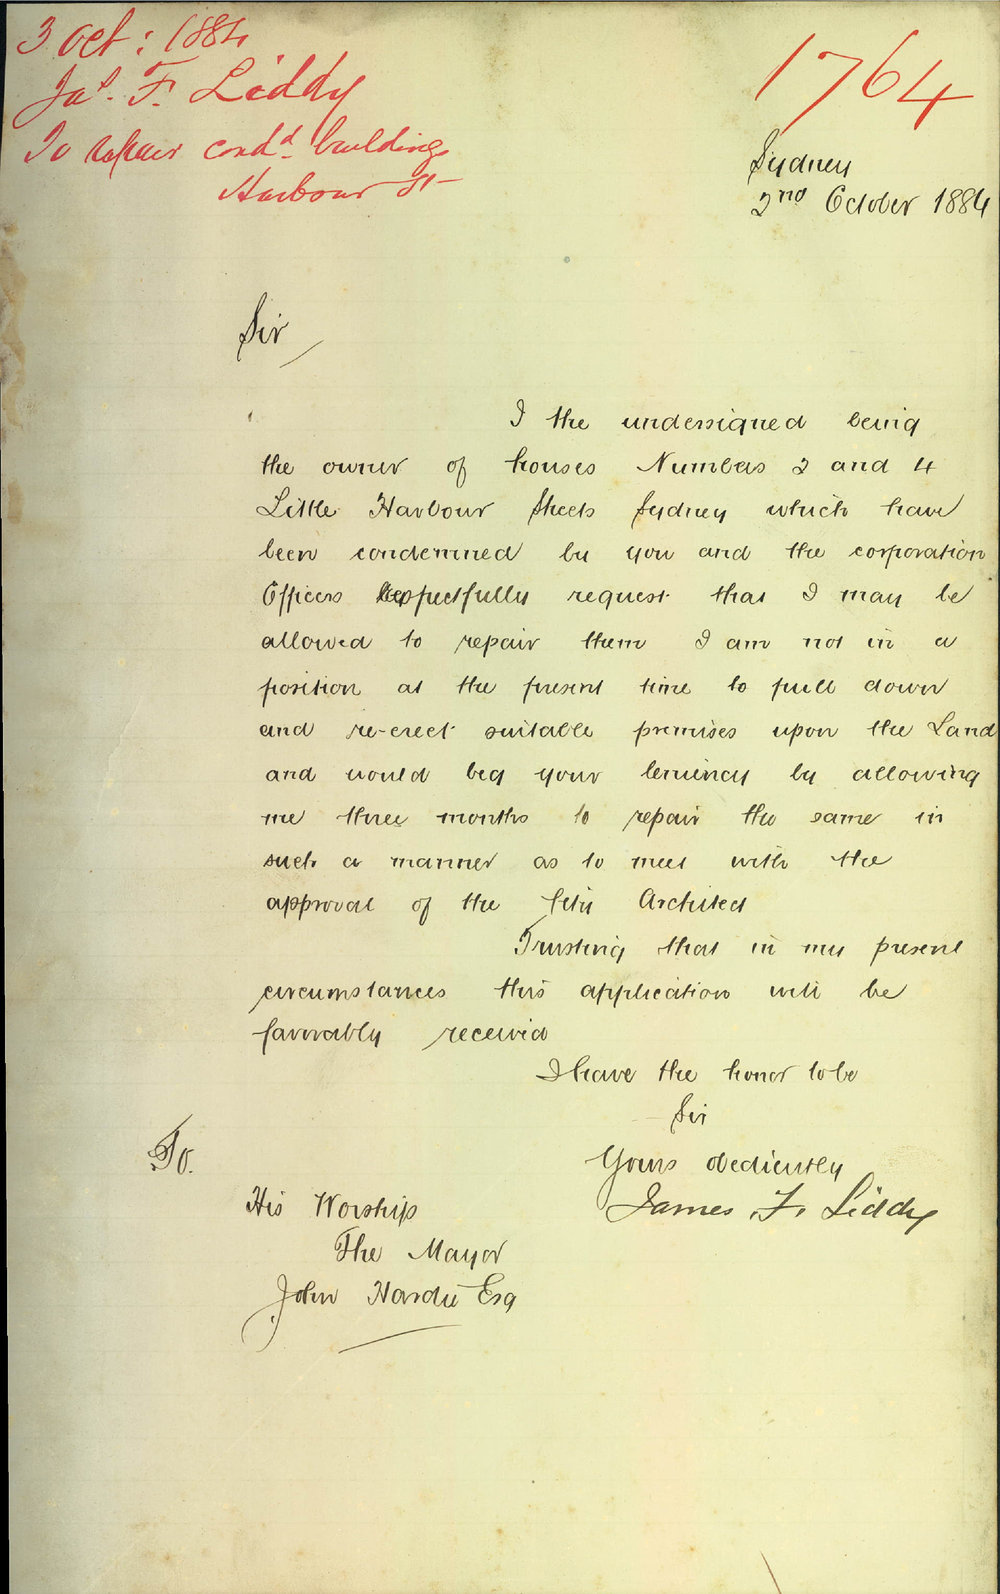 3 Oct: 1884
Jas. F. Liddy
To repair condd. buildings
Harbour St
1764
Sydney
2nd October 1884
Sir
I the undersigned being
the owner of houses Numbers 2 and 4
Little Harbour Streets Sydney which have
been condemned by you and the corporation
Officers Respectfully request that I may be
allowed to repair them I am not in a
position at the present time to pull down
and re-erect suitable premises upon the Land
and would beg your leniency by allowing
me three months to repair the same in
such a manner as to meet with the
approval of the City Architect
Trusting that in my present
circumstances this application will be
favorably received
I have the honor to be
Sir
Yours obediently
James F. Liddy
To.
His Worship
The Mayor
John Hardie Esq